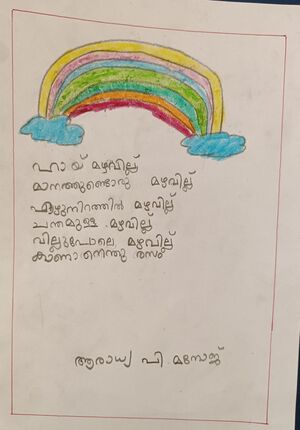 ഹായ് മഴവില്ല്
മാനത്തുണ്ടൊരു മഴവില്ല്
ഏഴുനിറത്തിൽ മഴവില്ല്
ചന്തമുള്ള മഴവില്ല്
വില്ലുപോലെ മഴവില്ല്
കാണാനെന്തു രസം
ആരാധ്യ പി മനോജ്